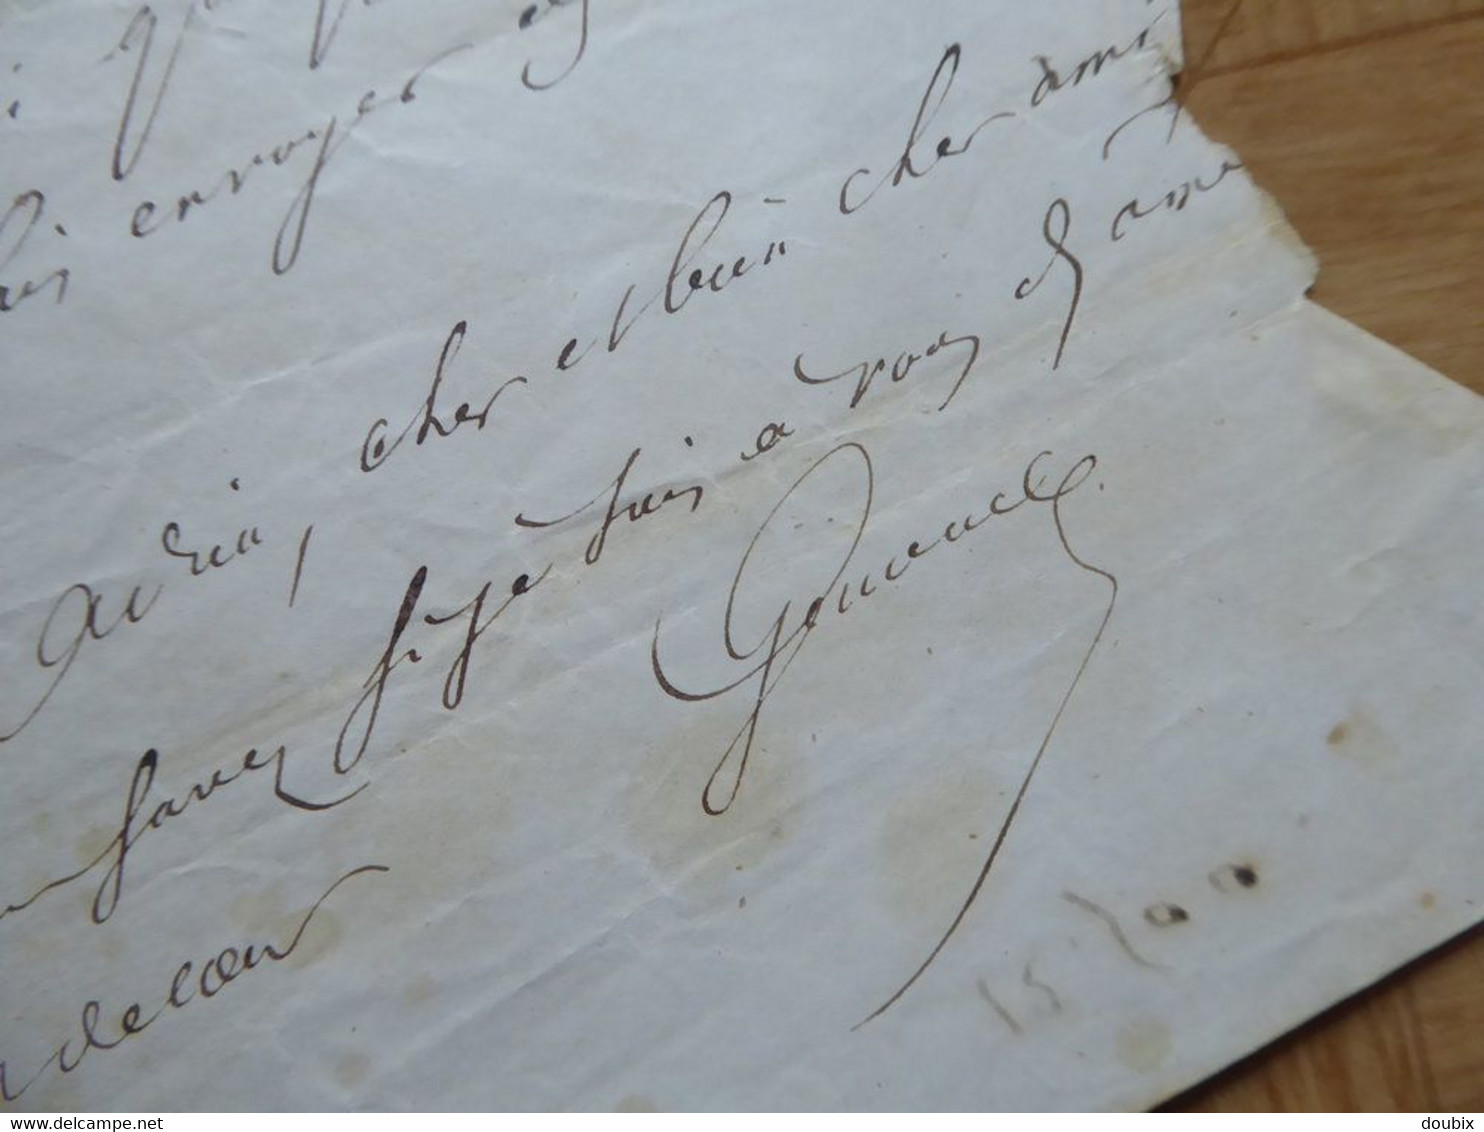 envoyer
adieu, cher et bien cher ami
savez si je suis à vous d'ame
de cœur
15 700
delcampe.net
doubix